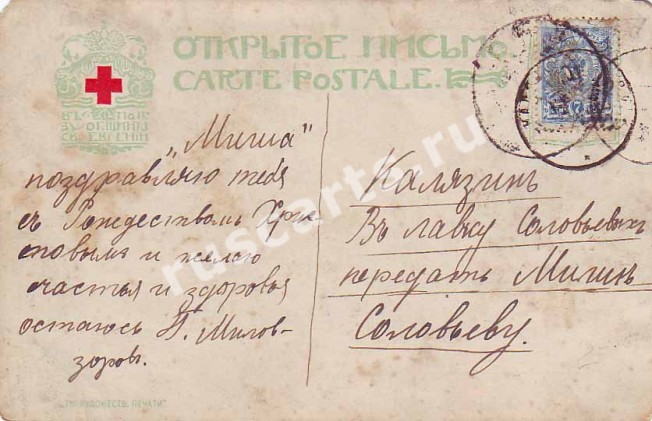 ОТКРЫТОЕ ПИСЬМО.
CARTE POSTALE.
ВЪ ПОЛЬЗУ ОБЩИНЫ
СВ. ЕВГЕНІИ
"Миша"
поздравляю тебя
съ Рождествомъ Хрис
товымъ и желаю
счастья и здоровья
остаюсь Н. Милов-
зоровъ.
Калязинъ
Въ лавку Соловьевыхъ
передать Мишѣ
Соловьеву.
ХУДОЖЕСТВ. ПЕЧАТИ"
ruscarte.ru